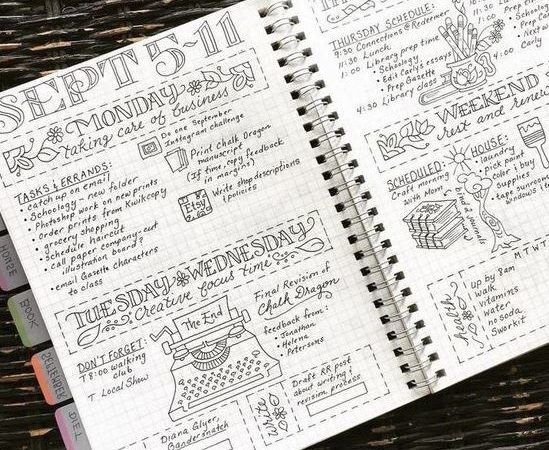 SEPT 5-11
MONDAY
taking care of business
Do one September
Instagram challenge
Print Chalk Dragon
manuscript
(If time, copy feedback
in margins)
Etsy
Write shop descriptions
& policies
TASKS & ERRANDS:
• catch up on email
• Schoology - new folder
• Photoshop work on new prints
• Order prints from Kwikcopy
• grocery shopping
• Schedule haircut
• call paper company: cut
illustration board?
• email Gazette characters
to class
TUESDAY WEDNESDAY
Creative focus time
DON'T FORGET:
T 8:00 walking
club
T Local Show
The End
Final Revision of
Chalk Dragon
feedback from:
• Jonathan
• Helena
• Petersons
1 Diana Glyer,
Bandersnatch
Write
Draft RR post
about writing &
revision process
THURSDAY SCHEDULE:
9:30 Connections @ Redeemer
11:30 Lunch
1:00 Library prep time
• Schoology
• Edit Carly's essays
• Prep Gazette
4:30 Library class
• Prep
• Cody
• Next w
4:00 Carly
WEEKEND
rest and renew
SCHEDULED:
Craft morning
with Mom
bind 2 journals
HOUSE:
• laundry
• Pick paint
color & buy
supplies
• tape sunroom
windows &
MTWT
health
up by 8am
walk
vitamins
water
no soda
Sworkit
HOUSE
BOOK
SEPTEMBER
DIET